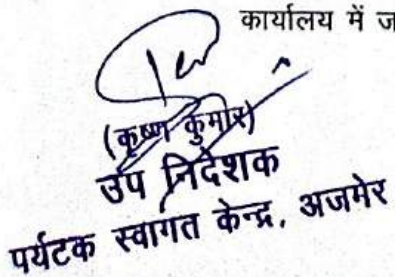 कार्यालय में
(कृष्ण कुमार)
उप निदेशक
पर्यटक स्वागत केन्द्र, अजमेर